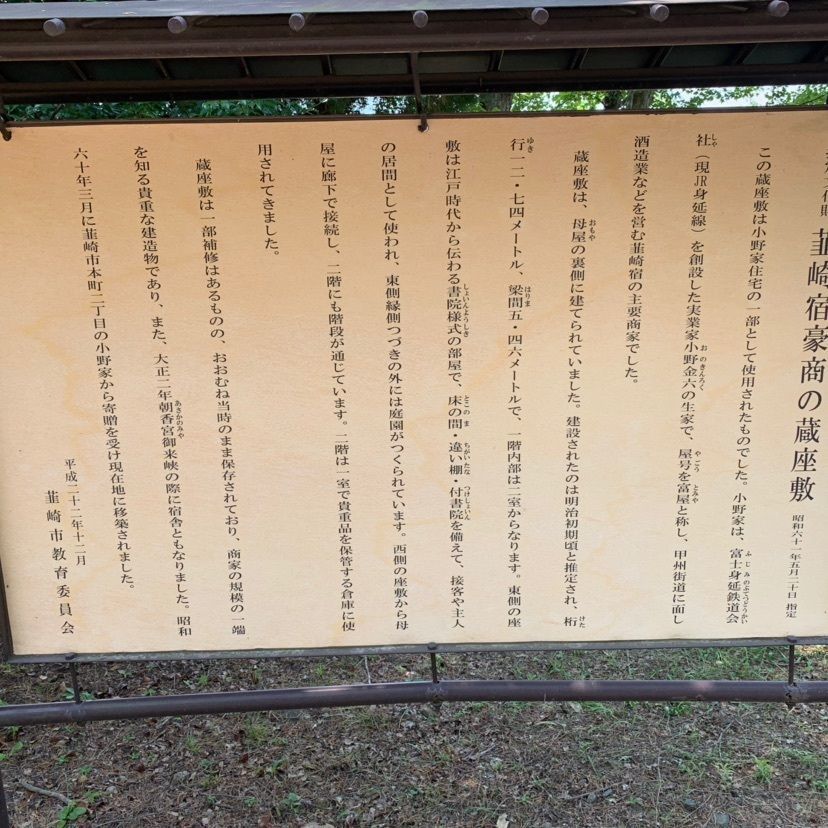 韮崎宿豪商の蔵座敷
昭和六十一年五月二十日 指定
この蔵座敷は小野家住宅の一部として使用されたものでした。小野家は、富士身延鉄道会
社(現JR身延線)を創設した実業家小野金六の生家で、屋号を富屋と称し、甲州街道に面し
酒造業などを営む韮崎宿の主要商家でした。
蔵座敷は、母屋の裏側に建てられていました。建設されたのは明治初期頃と推定され、桁
行一二・七四メートル、梁間五・四六メートルで、一階内部は二室からなります。東側の座
敷は江戸時代から伝わる書院様式の部屋で、床の間・違い棚・付書院を備えて、接客や主人
の居間として使われ、東側縁側つづきの外には庭園がつくられています。西側の座敷から母
屋に廊下で接続し、二階にも階段が通じています。二階は一室で貴重品を保管する倉庫に使
用されてきました。
蔵座敷は一部補修はあるものの、おおむね当時のまま保存されており、商家の規模の一端
を知る貴重な建造物であり、また、大正二年朝香宮御来峡の際に宿舎ともなりました。昭和
六十年三月に韮崎市本町二丁目の小野家から寄贈を受け現在地に移築されました。
平成二十二年十二月
韮崎市教育委員会